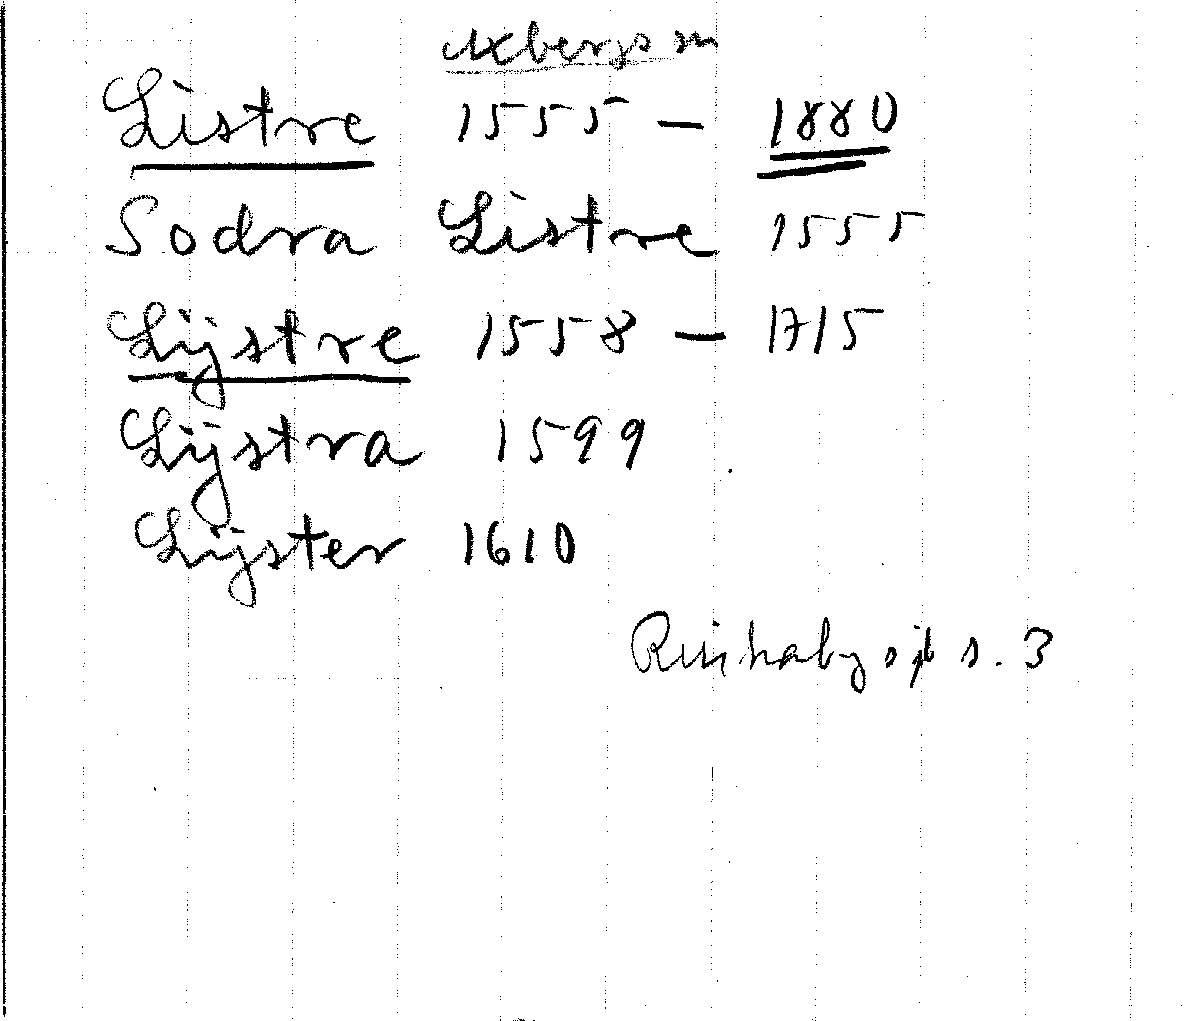 Åkbergs sn
Listre 1555 – 1880
Södra Listre 1555
Lijstre 1558 – 1715
Lijstra 1599
Lijster 1610
s. 3